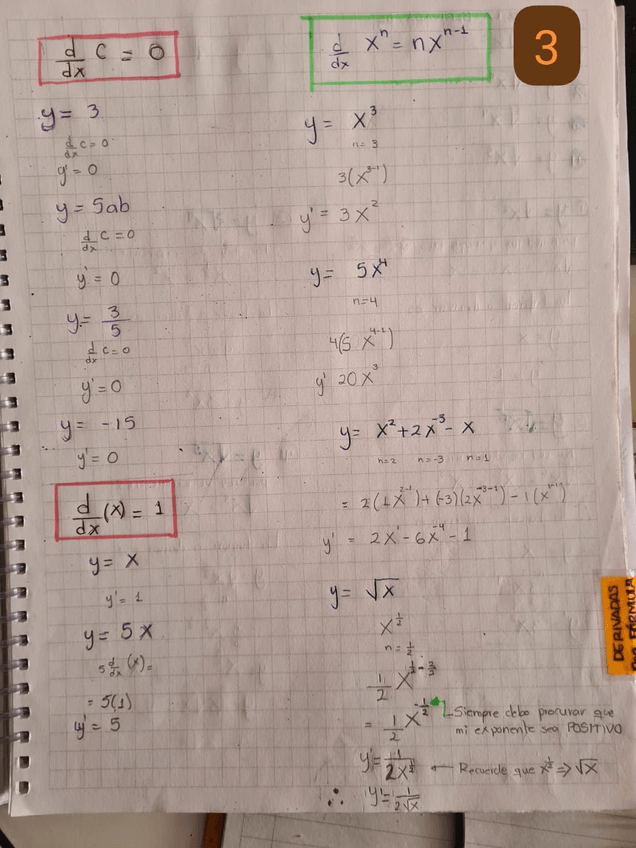 d/dx C = 0
y = 3
d/dx C = 0
y' = 0
y = 5ab
d/dx C = 0
y' = 0
y = 3/5
d/dx C = 0
y' = 0
y = -15
y' = 0
d/dx (x) = 1
y = x
y' = 1
y = 5x
5 d/dx (x) =
= 5(1)
y' = 5
d/dx xⁿ = nxⁿ⁻¹
3
y = x³
n = 3
3(x³⁻¹)
y' = 3x²
y = 5x⁴
n=4
4(5x⁴⁻¹)
y' 20x³
y = x² + 2x⁻³ - x
n=2 n=-3 n=1
= 2(1x²⁻¹) + (-3)(2x⁻³⁻¹) - 1(x¹⁻¹)
y' = 2x¹ - 6x⁻⁴ - 1
y = √x
x^(1/2)
n = 1/2
= 1/2 x^(-1/2)
Siempre debo procurar que
mi exponente sea POSITIVO
y' = 1/(2x^(1/2))
← Recuerde que x^(1/2) ⇒ √x
∴ y' = 1/(2√x)
DERIVADAS
POR FÓRMULA